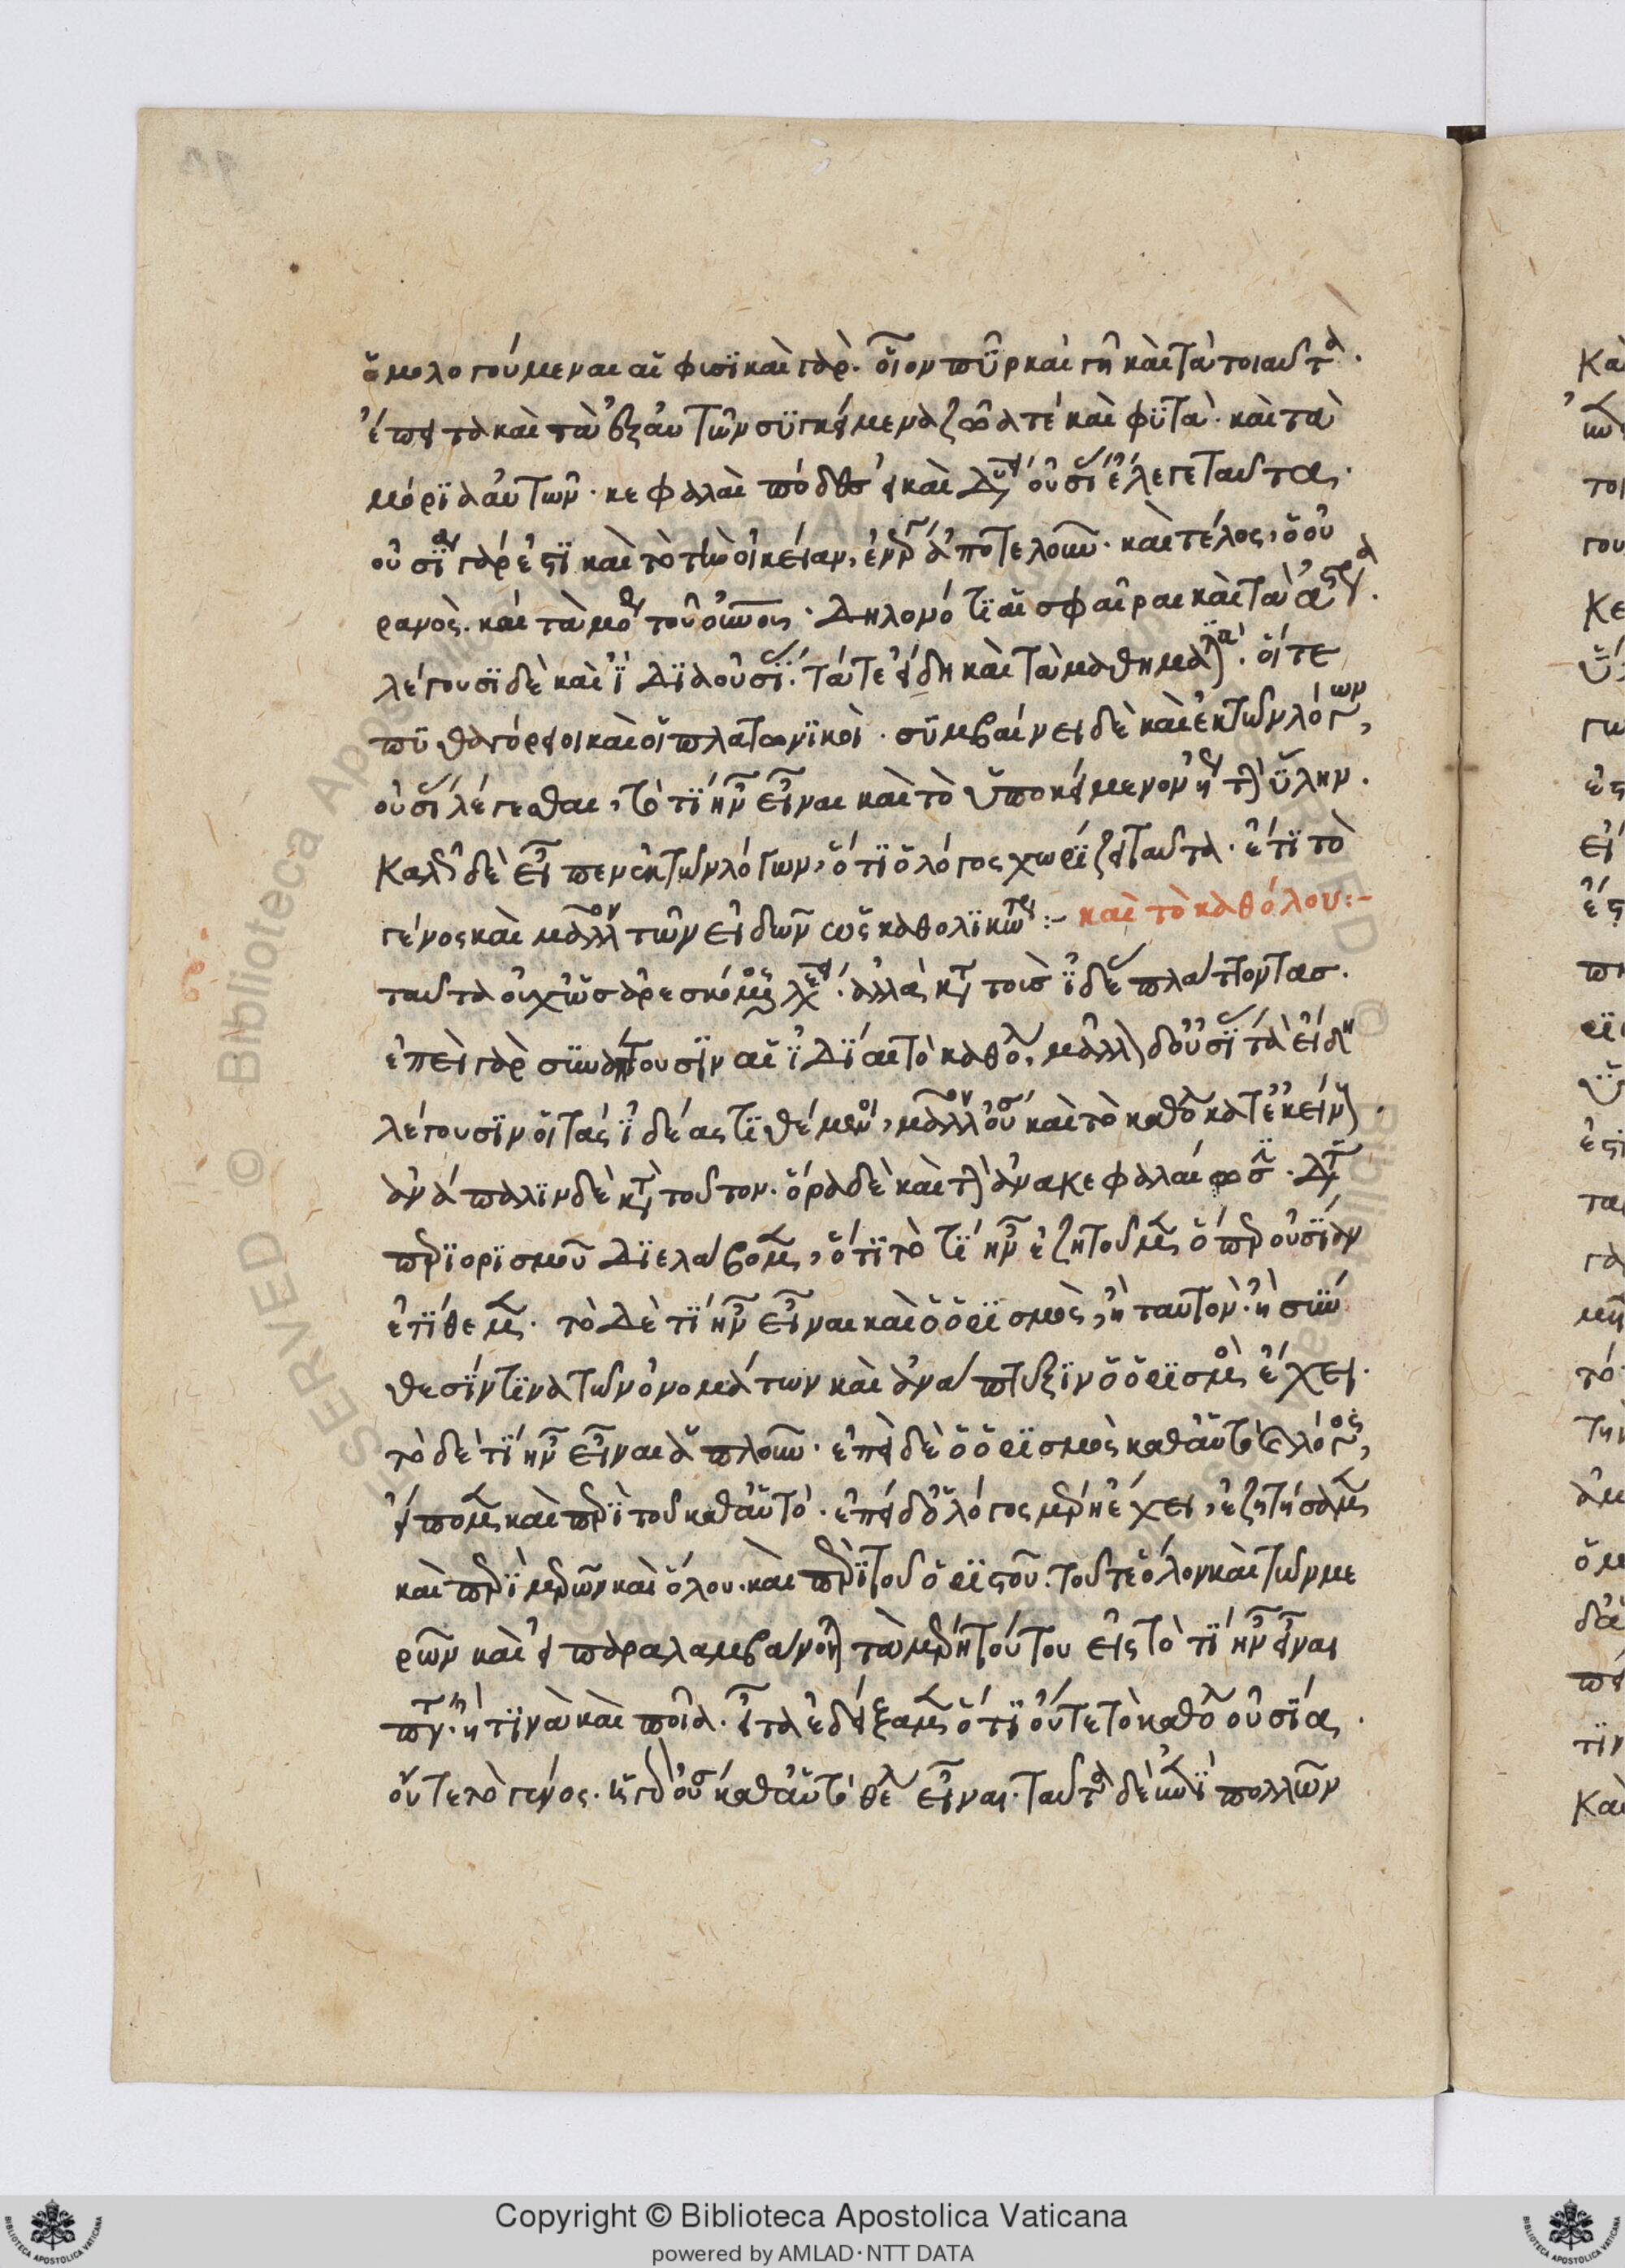 ὁμολογούμεναι αἱ φυσικαὶ γὰρ. οἷον πῦρ καὶ γῆ καὶ τὰ τοιαῦτα.
ἔπειτα καὶ τὰ ἐξ αὐτῶν συγκείμενα ζῶά τε καὶ φυτὰ. καὶ τὰ
μόρια αὐτῶν. κεφαλαὶ πόδες καὶ οὐσίαι λέγεται ταῦτα.
οὐσία γάρ ἐστι καὶ τὸ τὴν οἰκείαν ἐνέργειαν ἀποτελοῦν. καὶ τέλος, ὁ οὐ
ρανὸς. καὶ τὰ μόρια τοῦ οὐρανοῦ. δηλονότι αἱ σφαῖραι καὶ τὰ ἄστρα.
λέγουσι δὲ καὶ ἰδίᾳ οὐσίας. τά τε εἴδη καὶ τὰ μαθηματικά. οἵ τε
πυθαγόρειοι καὶ οἱ πλατωνικοὶ. συμβαίνει δὲ καὶ ἐκ τῶν λόγων,
οὐσίας λέγεσθαι, τό τί ἦν εἶναι καὶ τὸ ὑποκείμενον ἤγουν τὴν ὕλην.
Καλῶς δὲ εἶπεν ἐκ τῶν λόγων, ὅτι ὁ λόγος χωρίζει ταῦτα. ἔτι τὸ
γένος καὶ μᾶλλον τῶν εἰδῶν ὡς καθολικώτερον:- καὶ τὸ καθόλου:-
ταῦτα οὐχ ὡς ἀρεσκόμενος λέγει. ἀλλὰ κατὰ τοὺς ἰδέας πλάττοντας.
ἐπεὶ γὰρ συνάπτουσιν αἱ ἰδέαι τὸ καθόλου, μᾶλλον δ' οὐσίας τὰ εἴδη
λέγουσιν οἱ τὰς ἰδέας τιθέμενοι, μᾶλλον οὐσία καὶ τὸ καθόλου κατ' ἐκείνους.
ἀνάπαλιν δὲ κατὰ τοῦτον. ὅρα δὲ καὶ τὴν ἀνακεφαλαίωσιν. διότι
περὶ ὁρισμοῦ διελάβομεν, ὅτι τὸ τί ἦν ἐζητοῦμεν ὅπερ οὐσίαν
ἐτίθεμεν. τὸ δὲ τί ἦν εἶναι καὶ ὁ ὁρισμὸς, ἢ ταυτὸν. ἢ σύν
θεσίν τινα τῶν ὀνομάτων καὶ ἀνάπτυξιν ὁ ὁρισμὸς ἔχει.
τὸ δὲ τί ἦν εἶναι ἁπλοῦν. ἐπεὶ δὲ ὁ ὁρισμὸς καθ' αὑτό ἐστι λόγος,
εἴπομεν καὶ περὶ τοῦ καθ' αὑτὸ. ἐπεὶ δ' ὁ λόγος μέρη ἔχει, ἐζητήσαμεν
καὶ περὶ μερῶν καὶ ὅλου. καὶ περὶ τοῦ ὁριστοῦ. τοῦ τε ὅλου καὶ τῶν με
ρῶν καὶ εἰ παραλαμβάνονται τὰ μέρη τούτου εἰς τὸ τί ἦν εἶναι
πάντα. ἢ τινὰ καὶ ποῖα. εἶτα ἐδείξαμεν ὅτι οὔτε τὸ καθόλου οὐσία.
οὔτε τὸ γένος. ἡ γὰρ οὐσία καθ' αὑτό θέλει εἶναι. ταῦτα δὲ κοινὰ πολλῶν